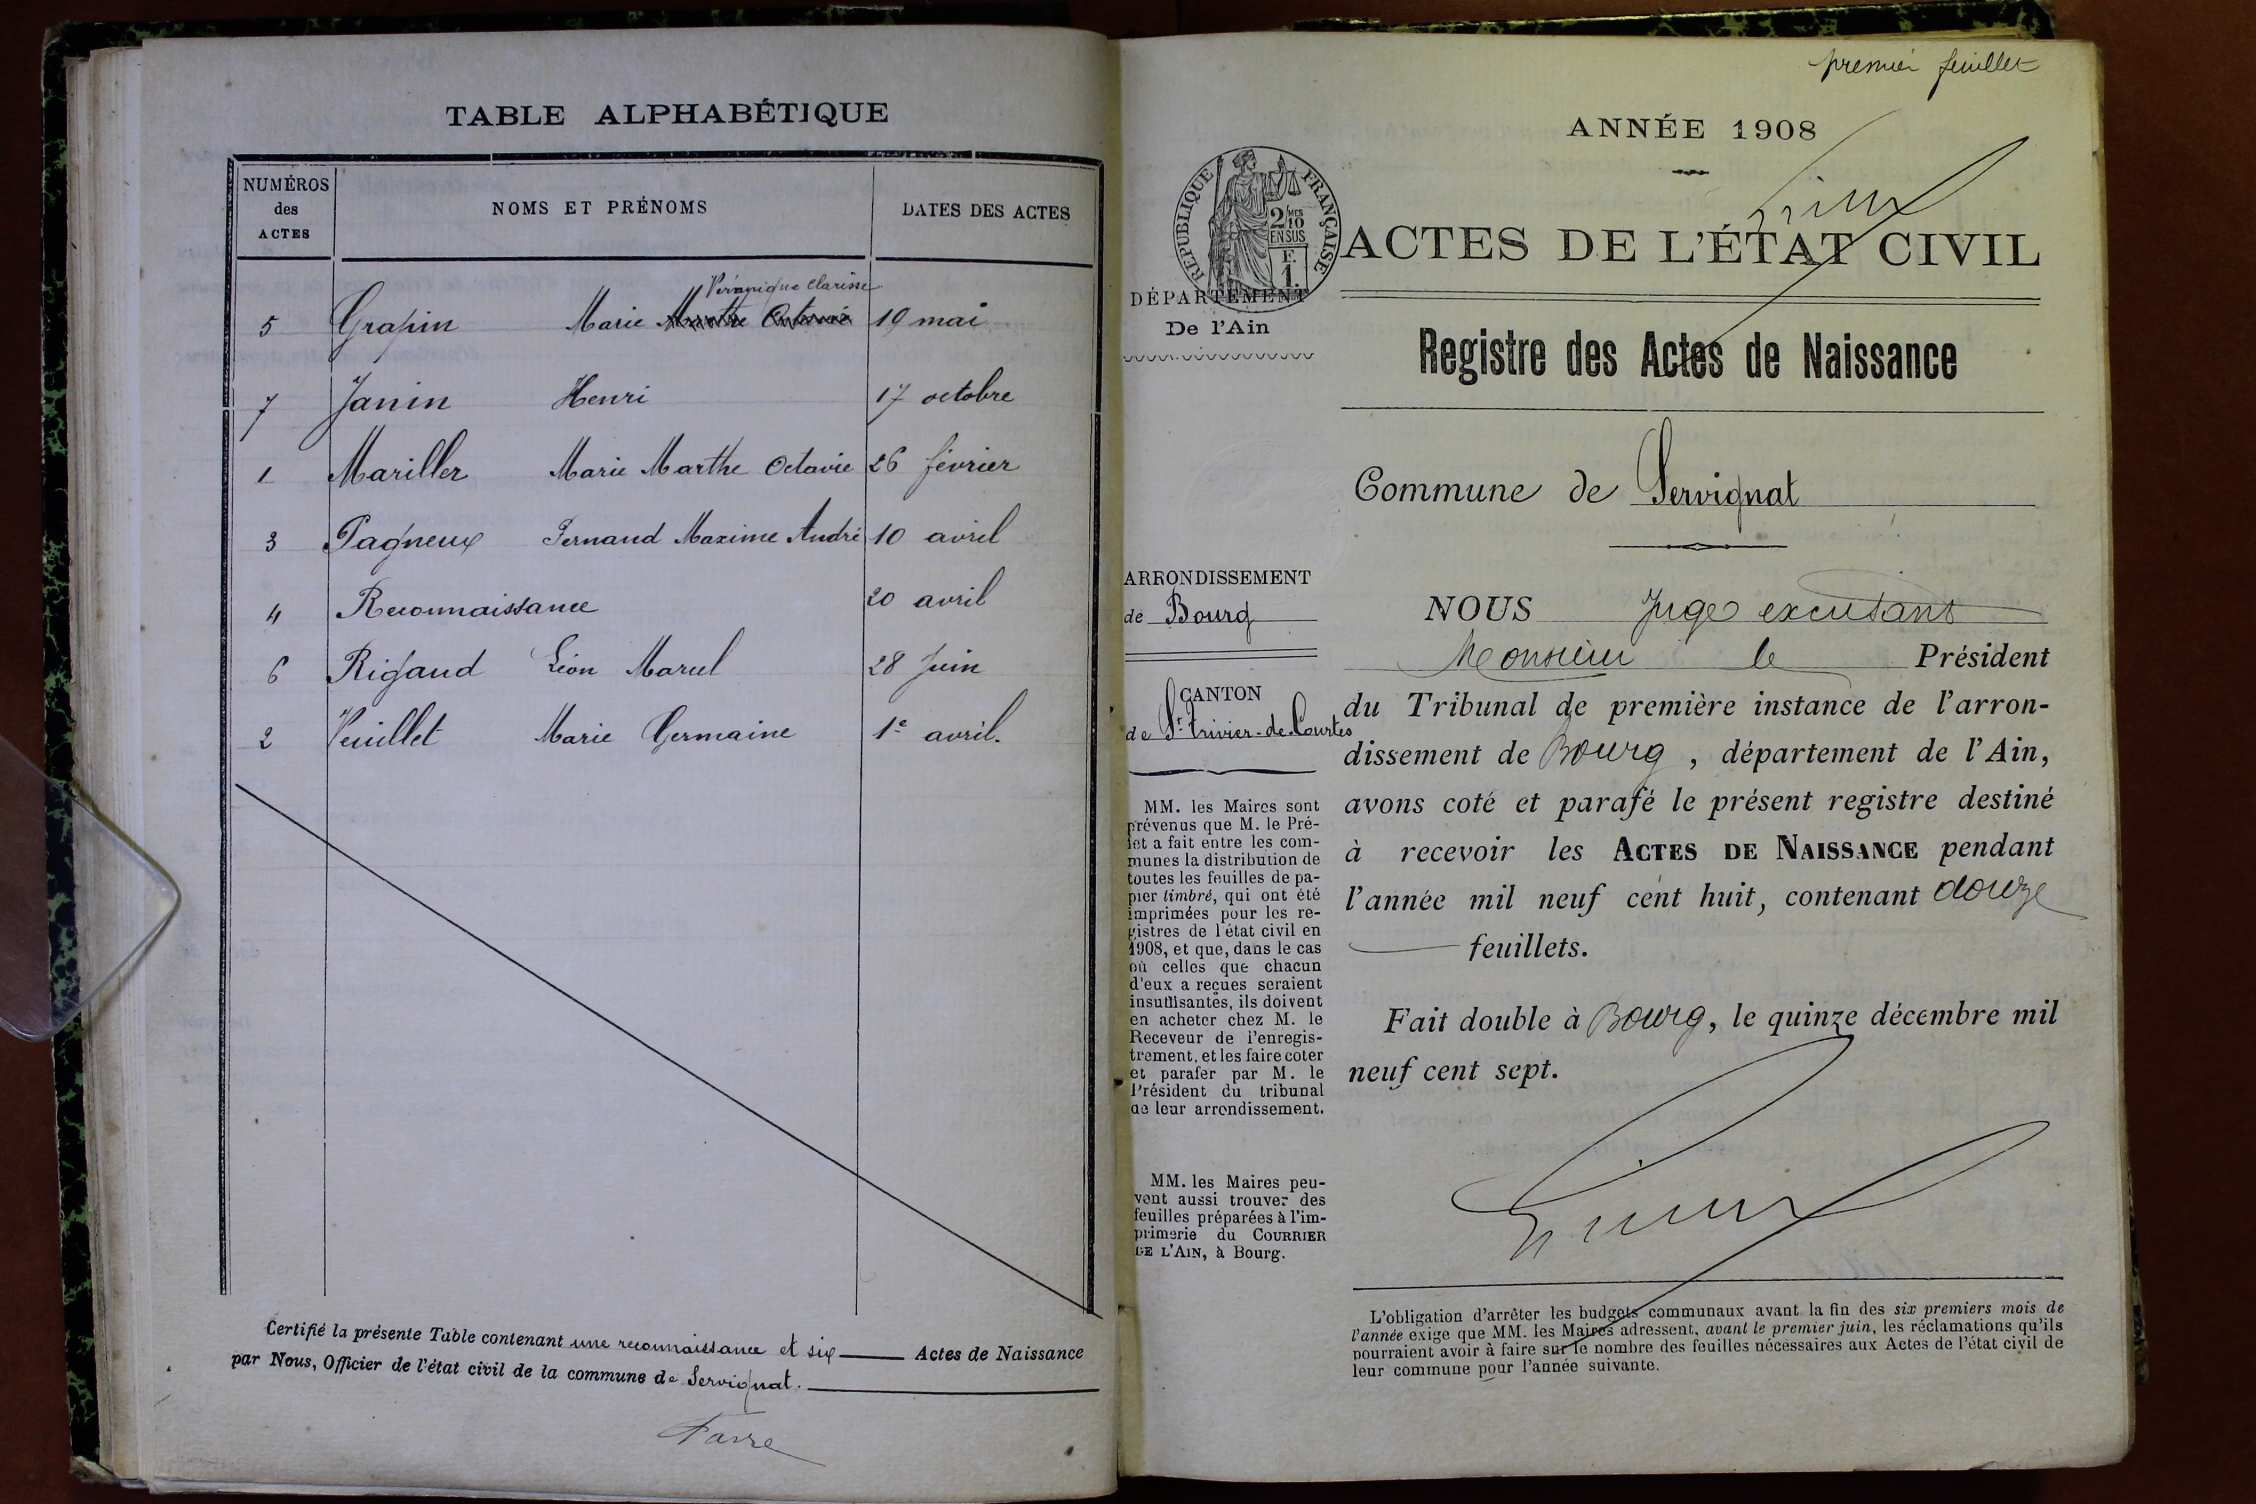 TABLE ALPHABÉTIQUE
NUMÉROS des ACTES NOMS ET PRÉNOMS DATES DES ACTES
Véronique Clarisse
5 Grapin Marie Marthe Octavie 19 mai
7 Janin Henri 17 octobre
1 Mariller Marie Marthe Octavie 26 février
3 Pagneux Fernand Maxime André 10 avril
4 Reconnaissance 20 avril
6 Rigaud Léon Marcel 28 Juin
2 Veuillet Marie Germaine 1e avril.
Certifié la présente Table contenant une reconnaissance et six Actes de Naissance
par Nous, Officier de l'état civil de la commune de Servignat.
premier feuillet
ANNÉE 1908
RÉPUBLIQUE FRANÇAISE
2/10 MES
EN SUS
F.
1.
ACTES DE L'ÉTAT CIVIL
DÉPARTEMENT
De l'Ain
Registre des Actes de Naissance
Commune de Servignat
ARRONDISSEMENT
de Bourg
CANTON
de St Trivier-de-Courtes
MM. les Maires sont
prévenus que M. le Pré-
fet a fait entre les com-
munes la distribution de
toutes les feuilles de pa-
pier timbré, qui ont été
imprimées pour les re-
gistres de l'état civil en
1908, et que, dans le cas
où celles que chacun
d'eux a reçues seraient
insuffisantes, ils doivent
en acheter chez M. le
Receveur de l'enregis-
trement, et les faire coter
et parafer par M. le
Président du tribunal
de leur arrondissement.
MM. les Maires peu-
vent aussi trouver des
feuilles préparées à l'im-
primerie du COURRIER
DE L'AIN, à Bourg.
NOUS Juge excusant
Monsieur le Président
du Tribunal de première instance de l'arron-
dissement de Bourg, département de l'Ain,
avons coté et parafé le présent registre destiné
à recevoir les ACTES DE NAISSANCE pendant
l'année mil neuf cent huit, contenant douze
feuillets.
Fait double à Bourg, le quinze décembre mil
neuf cent sept.
L'obligation d'arrêter les budgets communaux avant la fin des six premiers mois de
l'année exige que MM. les Maires adressent, avant le premier juin, les réclamations qu'ils
pourraient avoir à faire sur le nombre des feuilles nécessaires aux Actes de l'état civil de
leur commune pour l'année suivante.